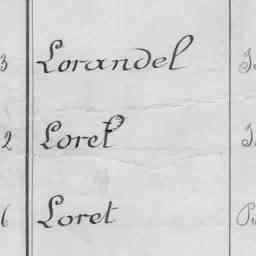 3 Lorandel
2 Loret
6 Loret